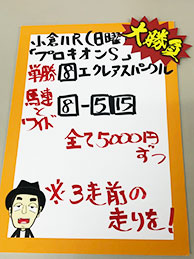 大勝負
小倉11R(日曜)
「プロキオンS」
単勝 8 エクレアスパークル
馬連とワイド 8-5,15
全て5000円ずつ
※3走前の
走りを!